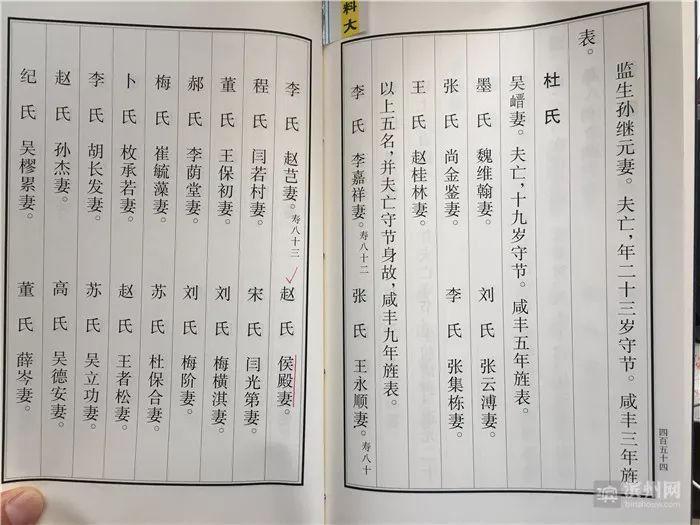 料大
监生孙继元妻。夫亡,年二十三岁守节。咸丰三年旌
表。
杜氏
吴嶍妻。夫亡,十九岁守节。咸丰五年旌表。
墨氏 魏维翰妻。 刘氏 张云溥妻。
张氏 尚金鉴妻。 李氏 张集栋妻。
王氏 赵桂林妻。
以上五名,并夫亡守节身故,咸丰九年旌表。
李氏 李嘉祥妻。寿八十二 张氏 王永顺妻。寿八十
四百五十四
李氏 赵芑妻。寿八十三 赵氏 侯殿妻。
程氏 闫若村妻。 宋氏 闫光第妻。
董氏 王保初妻。 刘氏 梅横淇妻。
郝氏 李荫堂妻。 刘氏 梅阶妻。
梅氏 崔毓藻妻。 苏氏 杜保合妻。
卜氏 枚承若妻。 赵氏 王者松妻。
李氏 胡长发妻。 苏氏 吴立功妻。
赵氏 孙杰妻。 高氏 吴德安妻。
纪氏 吴樛累妻。 董氏 薛岑妻。
滨州网
binzhouw.com